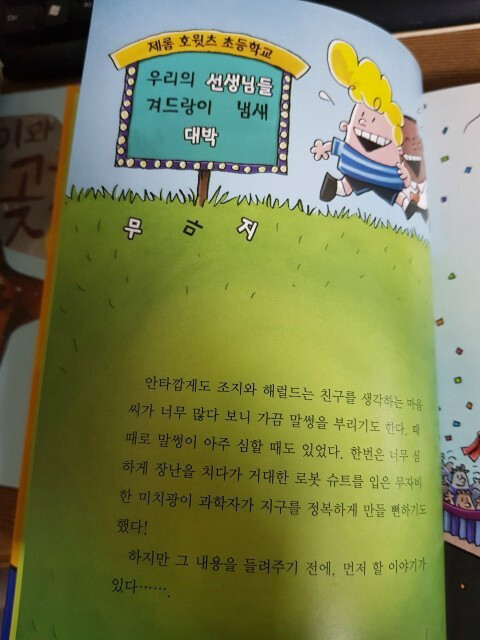 제롬 호윗츠 초등학교
우리의 선생님들
겨드랑이 냄새
대박
무 ㅎ 지
안타깝게도 조지와 해럴드는 친구를 생각하는 마음
씨가 너무 많다 보니 가끔 말썽을 부리기도 한다. 때
때로 말썽이 아주 심할 때도 있었다. 한번은 너무 심
하게 장난을 치다가 거대한 로봇 슈트를 입은 무자비
한 미치광이 과학자가 지구를 정복하게 만들 뻔하기도
했다!
하지만 그 내용을 들려주기 전에, 먼저 할 이야기가
있다…….
이와